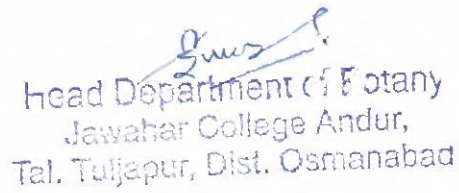 Head Department of Botany
Jawahar College Andur,
Tal. Tuljapur, Dist. Osmanabad